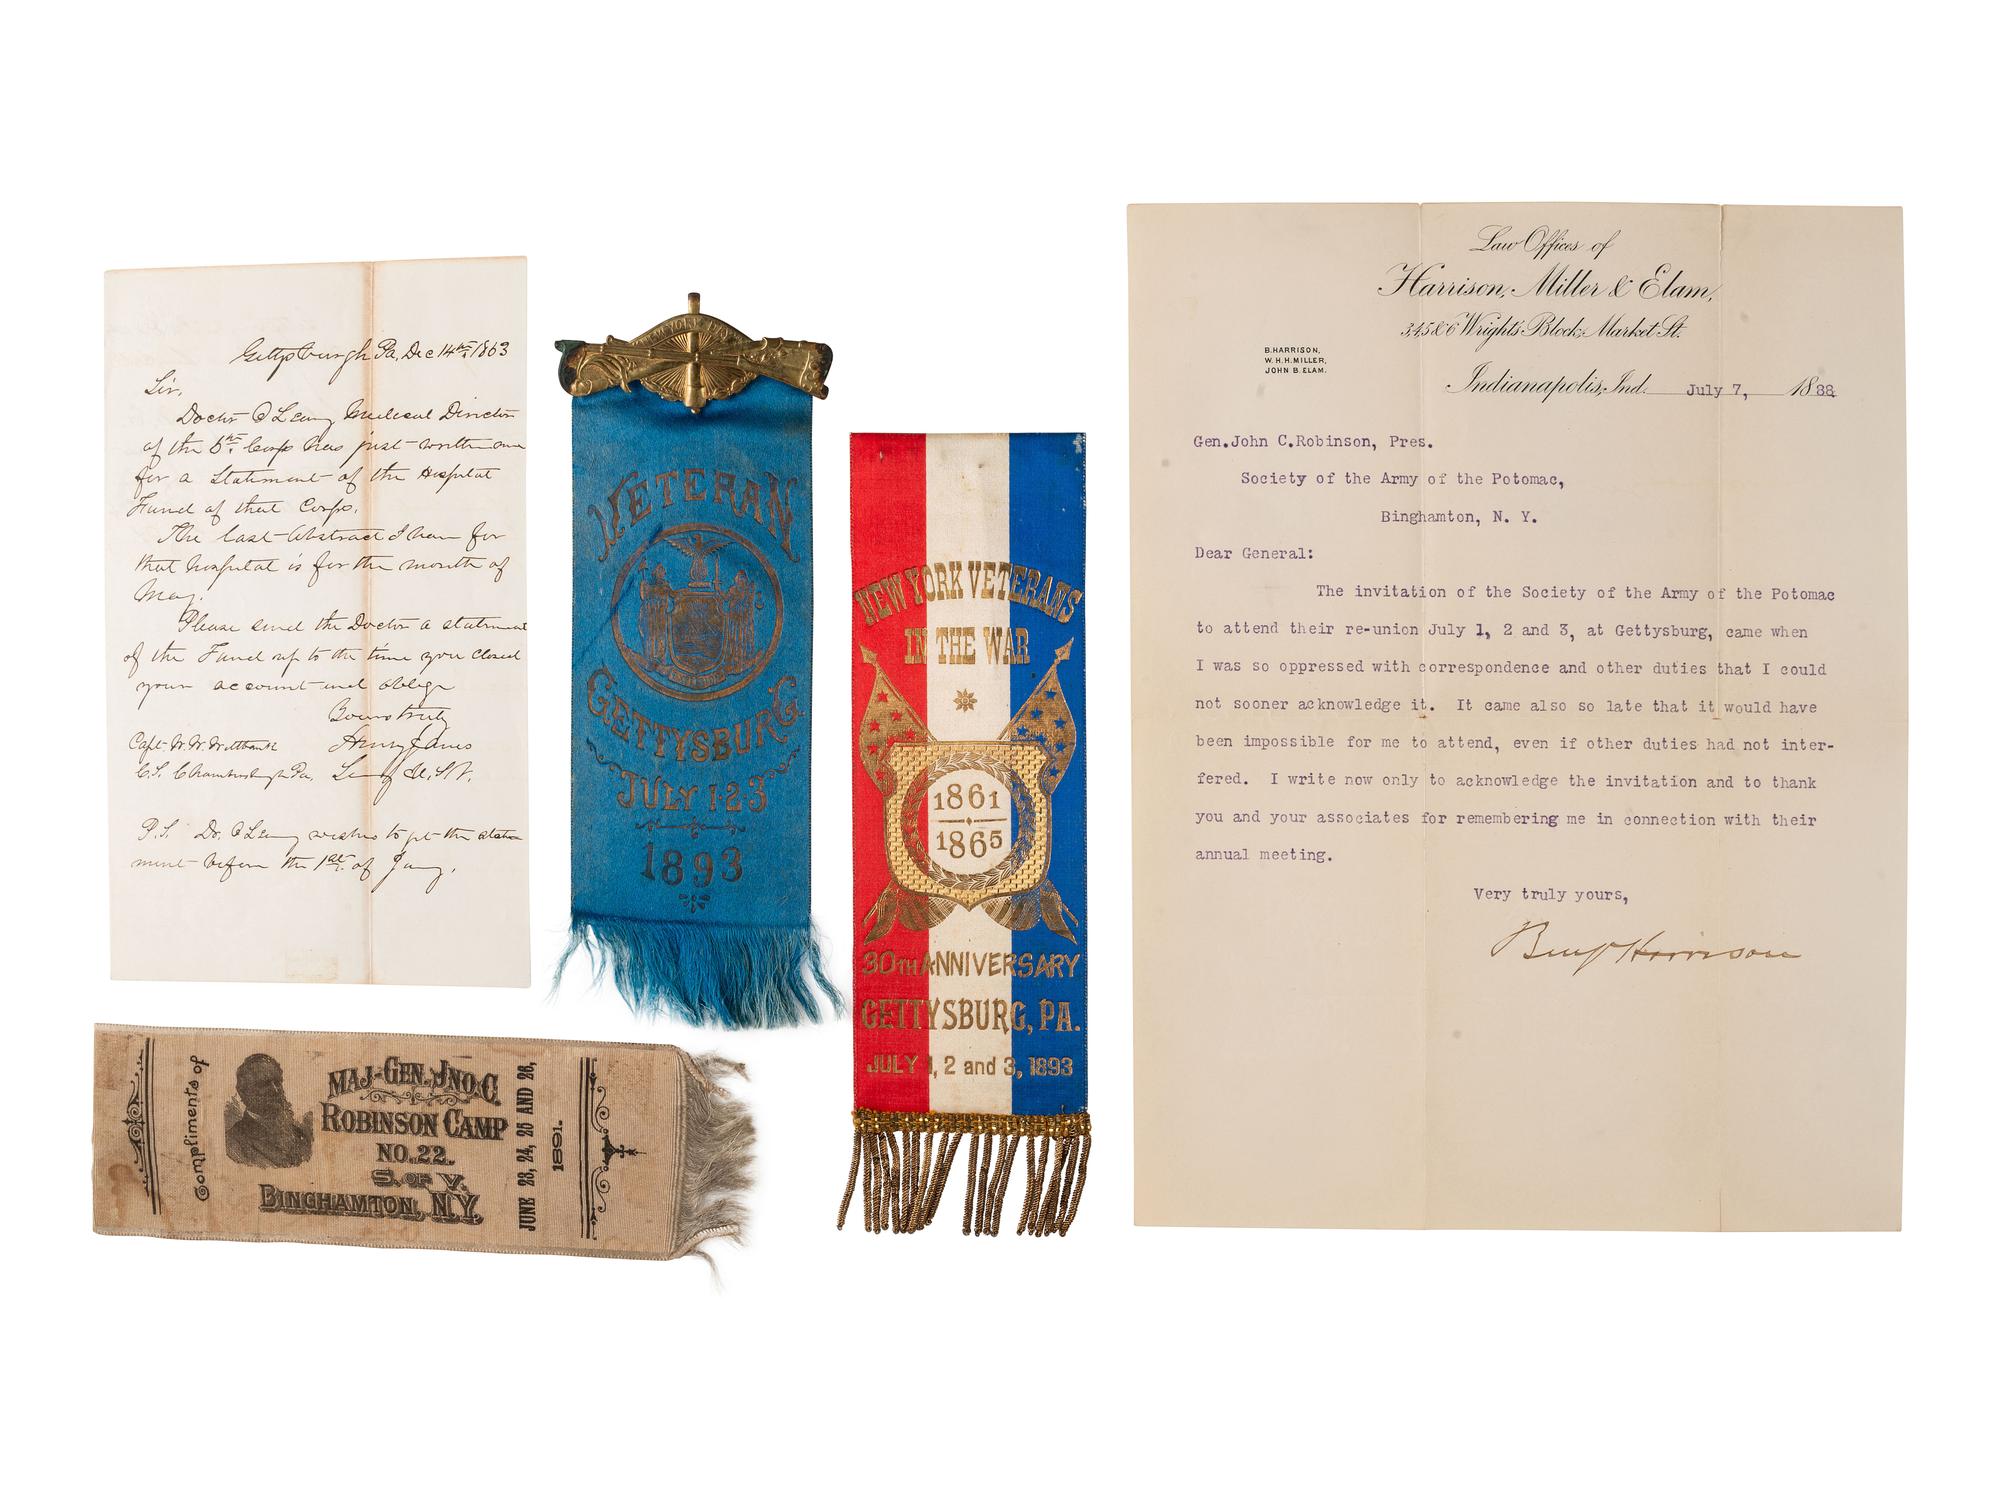 Gettysburgh Pa, Dec 14th 1863
Sir,
Doctr O'Leary Medical Director
of the 5th Corps has just written me
for a Statement of the Hospital
Fund of that Corps.
The last Abstract I have for
that hospital is for the month of
May.
Please send the Doctor a statement
of the Fund up to the time you closed
your account and oblige
Yours truly
Henry Janes
Capt. W. W.
C.S. Chambersburgh Pa. Surg U.S.V.
P.S. Dr. O'Leary wishes to get the state-
ment before the 1st of Jany.
NEW YORK DAY
VETERAN
GETTYSBURG
JULY 1·2·3
1893
NEW YORK VETERANS
IN THE WAR
1861
1865
30TH ANNIVERSARY
GETTYSBURG, PA.
JULY 1, 2 and 3, 1893
Compliments of
MAJ-GEN. JNO. C.
ROBINSON CAMP
NO. 22.
S. OF V.
BINGHAMTON, N.Y.
JUNE 23, 24, 25 AND 26,
1891.
Law Offices of
Harrison, Miller & Elam,
3,4,5 & 6 Wright's Block, Market St.
B. HARRISON,
W. H. H. MILLER,
JOHN B. ELAM.
Indianapolis, Ind. July 7, 1888
Gen. John C. Robinson, Pres.
Society of the Army of the Potomac,
Binghamton, N. Y.
Dear General:
The invitation of the Society of the Army of the Potomac
to attend their re-union July 1, 2 and 3, at Gettysburg, came when
I was so oppressed with correspondence and other duties that I could
not sooner acknowledge it. It came also so late that it would have
been impossible for me to attend, even if other duties had not inter-
fered. I write now only to acknowledge the invitation and to thank
you and your associates for remembering me in connection with their
annual meeting.
Very truly yours,
Benj Harrison